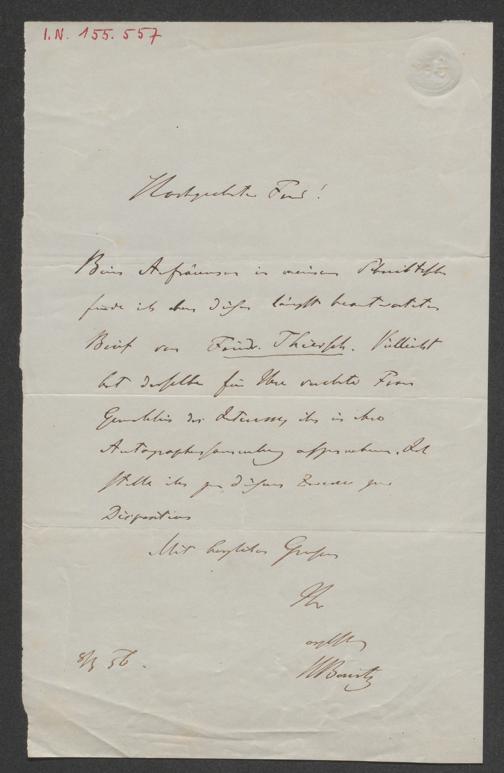 I.N. 155.557
Hochgeehrter Freund!
Beim Aufräumen in meinem Schreibtische
finde ich eben diesen längst beantworteten
Brief von Friedr. Thiersch. Vielleicht
hat derselbe für Ihre verehrte Frau
Gemahlin das Interesse, ihn in ihre
Autographensammlung aufzunehmen. Ich
stelle ihn zu diesem Zwecke zur
Disposition
Mit herzlichem Grusse
Ihr
HBonitz
8/3 56.